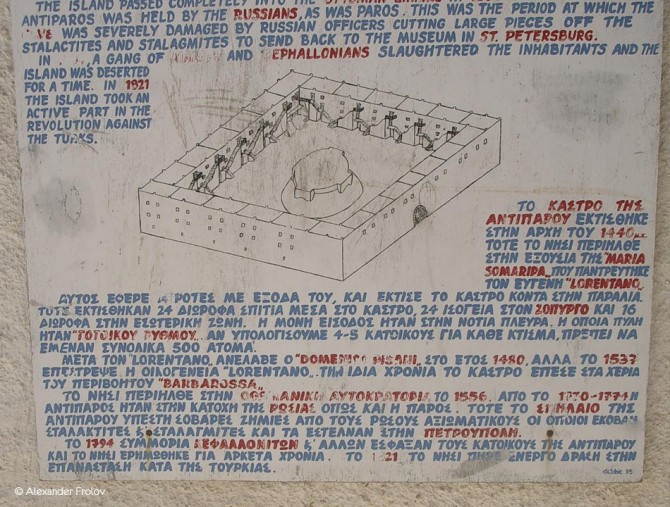 THE ISLAND PASSED COMPLETELY INTO THE OTTOMAN EMPIRE
ANTIPAROS WAS HELD BY THE RUSSIANS, AS WAS PAROS. THIS WAS THE PERIOD AT WHICH THE
WAS SEVERELY DAMAGED BY RUSSIAN OFFICERS CUTTING LARGE PIECES OFF THE
STALACTITES AND STALAGMITES TO SEND BACK TO THE MUSEUM IN ST. PETERSBURG.
IN A GANG OF AND EPHALLONIANS SLAUGHTERED THE INHABITANTS AND THE
ISLAND WAS DESERTED
FOR A TIME. IN 1921
THE ISLAND TOOK AN
ACTIVE PART IN THE
REVOLUTION AGAINST
THE TURKS.
ΤΟ ΚΑΣΤΡΟ ΤΗΣ
ΑΝΤΙΠΑΡΟΥ ΕΚΤΙΣΘΗΚΕ
ΣΤΗΝ ΑΡΧΗ ΤΟΥ 1440
ΤΟΤΕ ΤΟ ΝΗΣΙ ΠΕΡΙΗΛΘΕ
ΣΤΗΝ ΕΞΟΥΣΙΑ ΤΗΣ "MARIA
SOMARIPA" ΠΟΥ ΠΑΝΤΡΕΥΤΗΚΕ
ΤΟΝ ΕΥΓΕΝΗ "LORENTANO"
ΑΥΤΟΣ ΕΦΕΡΕ ΑΓΡΟΤΕΣ ΜΕ ΕΞΟΔΑ ΤΟΥ, ΚΑΙ ΕΚΤΙΣΕ ΤΟ ΚΑΣΤΡΟ ΚΟΝΤΑ ΣΤΗΝ ΠΑΡΑΛΙΑ.
ΤΟΤΕ ΕΚΤΙΣΘΗΚΑΝ 24 ΔΙΩΡΟΦΑ ΣΠΙΤΙΑ ΜΕΣΑ ΣΤΟ ΚΑΣΤΡΟ, 24 ΙΣΟΓΕΙΑ ΣΤΟΝ ΞΟΠΥΡΓΟ ΚΑΙ 16
ΔΙΩΡΟΦΑ ΣΤΗΝ ΕΣΩΤΕΡΙΚΗ ΖΩΝΗ. Η ΜΟΝΗ ΕΙΣΟΔΟΣ ΗΤΑΝ ΣΤΗΝ ΝΟΤΙΑ ΠΛΕΥΡΑ. Η ΟΠΟΙΑ ΠΥΛΗ
ΗΤΑΝ "ΓΟΤΘΙΚΟΥ ΡΥΘΜΟΥ". ΑΝ ΥΠΟΛΟΓΙΣΟΥΜΕ 4-5 ΚΑΤΟΙΚΟΥΣ ΓΙΑ ΚΑΘΕ ΚΤΙΣΜΑ, ΠΡΕΠΕΙ ΝΑ
ΕΜΕΝΑΝ ΣΥΝΟΛΙΚΑ 500 ΑΤΟΜΑ.
ΜΕΤΑ ΤΟΝ "LORENTANO", ΑΝΕΛΑΒΕ Ο "DOMENICO PISANI", ΣΤΟ ΕΤΟΣ 1480, ΑΛΛΑ ΤΟ 1537
ΕΠΕΣΤΡΕΨΕ Η ΟΙΚΟΓΕΝΕΙΑ "LORENTANO". ΤΗΝ ΙΔΙΑ ΧΡΟΝΙΑ ΤΟ ΚΑΣΤΡΟ ΕΠΕΣΕ ΣΤΑ ΧΕΡΙΑ
ΤΟΥ ΠΕΡΙΒΟΗΤΟΥ "BARBAROSSA"
ΤΟ ΝΗΣΙ ΠΕΡΙΗΛΘΕ ΣΤΗΝ ΑΥΤΟΚΡΑΤΟΡΙΑ ΤΟ 1556. ΑΠΟ ΤΟ 1770-1774 Η
ΑΝΤΙΠΑΡΟΣ ΗΤΑΝ ΣΤΗΝ ΚΑΤΟΧΗ ΤΗΣ ΡΩΣΙΑΣ ΟΠΩΣ ΚΑΙ Η ΠΑΡΟΣ. ΤΟΤΕ ΤΟ ΣΠΗΛΑΙΟ ΤΗΣ
ΑΝΤΙΠΑΡΟΥ ΥΠΕΣΤΗ ΣΟΒΑΡΕΣ ΖΗΜΙΕΣ ΑΠΟ ΤΟΥΣ ΡΩΣΟΥΣ ΑΞΙΩΜΑΤΙΚΟΥΣ ΟΙ ΟΠΟΙΟΙ ΕΚΟΒΑΝ
ΣΤΑΛΑΚΤΙΤΕΣ & ΣΤΑΛΑΓΜΙΤΕΣ ΚΑΙ ΤΑ ΕΣΤΕΛΝΑΝ ΣΤΗΝ ΠΕΤΡΟΥΠΟΛΗ.
ΤΟ 1794 ΣΥΜΜΟΡΙΑ ΚΕΦΑΛΛΟΝΙΤΩΝ & ΑΛΛΩΝ ΕΣΦΑΞΑΝ ΤΟΥΣ ΚΑΤΟΙΚΟΥΣ ΤΗΣ ΑΝΤΙΠΑΡΟΥ
ΚΑΙ ΤΟ ΝΗΣΙ ΕΡΗΜΩΘΗΚΕ ΓΙΑ ΑΡΚΕΤΑ ΧΡΟΝΙΑ. ΤΟ 1821 ΤΟ ΝΗΣΙ ΠΗΡΕ ΕΝΕΡΓΟ ΔΡΑΣΗ ΣΤΗΝ
ΕΠΑΝΑΣΤΑΣΗ ΚΑΤΑ ΤΗΣ ΤΟΥΡΚΙΑΣ.
© Alexander Frolov